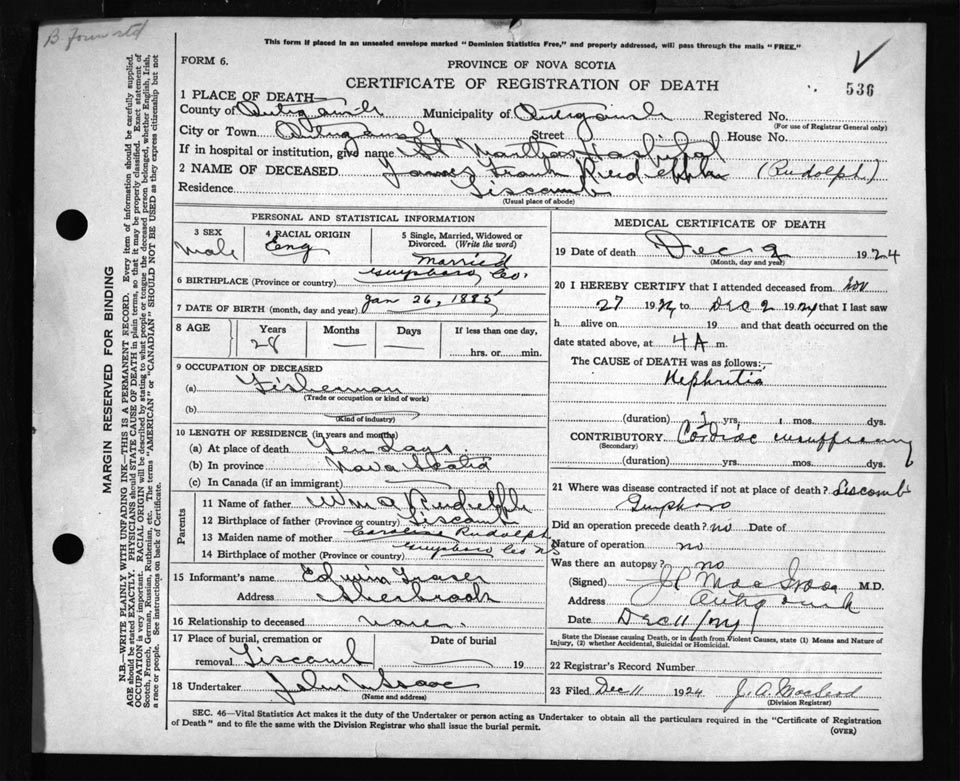 B. Forward
This form if placed in an unsealed envelope marked "Dominion Statistics Free," and properly addressed, will pass through the mails "FREE."
FORM 6.
PROVINCE OF NOVA SCOTIA
CERTIFICATE OF REGISTRATION OF DEATH
536
1 PLACE OF DEATH
County of Antigonish Municipality of Antigonish Registered No.
(For use of Registrar General only)
City or Town Antigonish Street House No.
If in hospital or institution, give name St Marthas Hospital
2 NAME OF DECEASED James Frank Rudolph (Rudolph)
Residence Liscomb
(Usual place of abode)
PERSONAL AND STATISTICAL INFORMATION
3 SEX Male
4 RACIAL ORIGIN Eng
5 Single, Married, Widowed or Divorced. (Write the word) Married
6 BIRTHPLACE (Province or country) Guysboro Co.
7 DATE OF BIRTH (month, day and year) Jan 26, 1885
8 AGE Years Months Days If less than one day,
28 — — hrs. or min.
9 OCCUPATION OF DECEASED
(a) Fisherman
(Trade or occupation or kind of work)
(b)
(Kind of industry)
10 LENGTH OF RESIDENCE (in years and months)
(a) At place of death Ten days
(b) In province Nova Scotia
(c) In Canada (if an immigrant)
Parents
11 Name of father Wm Rudolph
12 Birthplace of father (Province or country) Liscomb
13 Maiden name of mother Caroline Rudolph
14 Birthplace of mother (Province or country) Guysboro Co NS
15 Informant's name Edwin Fraser
Address Sherbrook
16 Relationship to deceased none
17 Place of burial, cremation or removal Liscomb Date of burial 19
18 Undertaker John
(Name and address)
MEDICAL CERTIFICATE OF DEATH
19 Date of death Dec 2 1924
(Month, day and year)
20 I HEREBY CERTIFY that I attended deceased from Nov
27 1924 to Dec 2 1924 that I last saw
h alive on 19 and that death occurred on
date stated above, at 4 A m.
The CAUSE of DEATH was as follows:—
Nephritis
(duration) 2 yrs. mos. dys.
CONTRIBUTORY Cardiac insufficiency
(Secondary)
(duration) yrs. mos. dys.
21 Where was disease contracted if not at place of death? Liscomb
Guysboro
Did an operation precede death? no Date of
Nature of operation no
Was there an autopsy? no
(Signed) M.D.
Address Antigonish
Date Dec 11/24
State the Disease causing Death, or in death from Violent Causes, state (1) Means and Nature of Injury, (2) whether Accidental, Suicidal or Homicidal.
22 Registrar's Record Number
23 Filed Dec 11 1924 J. A. Macleod
(Division Registrar)
SEC. 46—Vital Statistics Act makes it the duty of the Undertaker or person acting as Undertaker to obtain all the particulars required in the "Certificate of Registration
of Death" and to file the same with the Division Registrar who shall issue the burial permit.
(OVER)
MARGIN RESERVED FOR BINDING
N.B.—WRITE PLAINLY WITH UNFADING INK—THIS IS A PERMANENT RECORD. Every item of information should be carefully supplied.
AGE should be stated EXACTLY. PHYSICIANS should STATE CAUSE OF DEATH in plain terms, so that it may be properly classified. Exact statement of
OCCUPATION is very important. RACIAL ORIGIN will be described by stating to what people or tongue the deceased person belonged, whether English, Irish,
Scotch, French, German, Russian, Ruthenian, etc. The terms "AMERICAN" or "CANADIAN" SHOULD NOT BE USED as they express citizenship but not
a race or people. See instructions on back of Certificate.